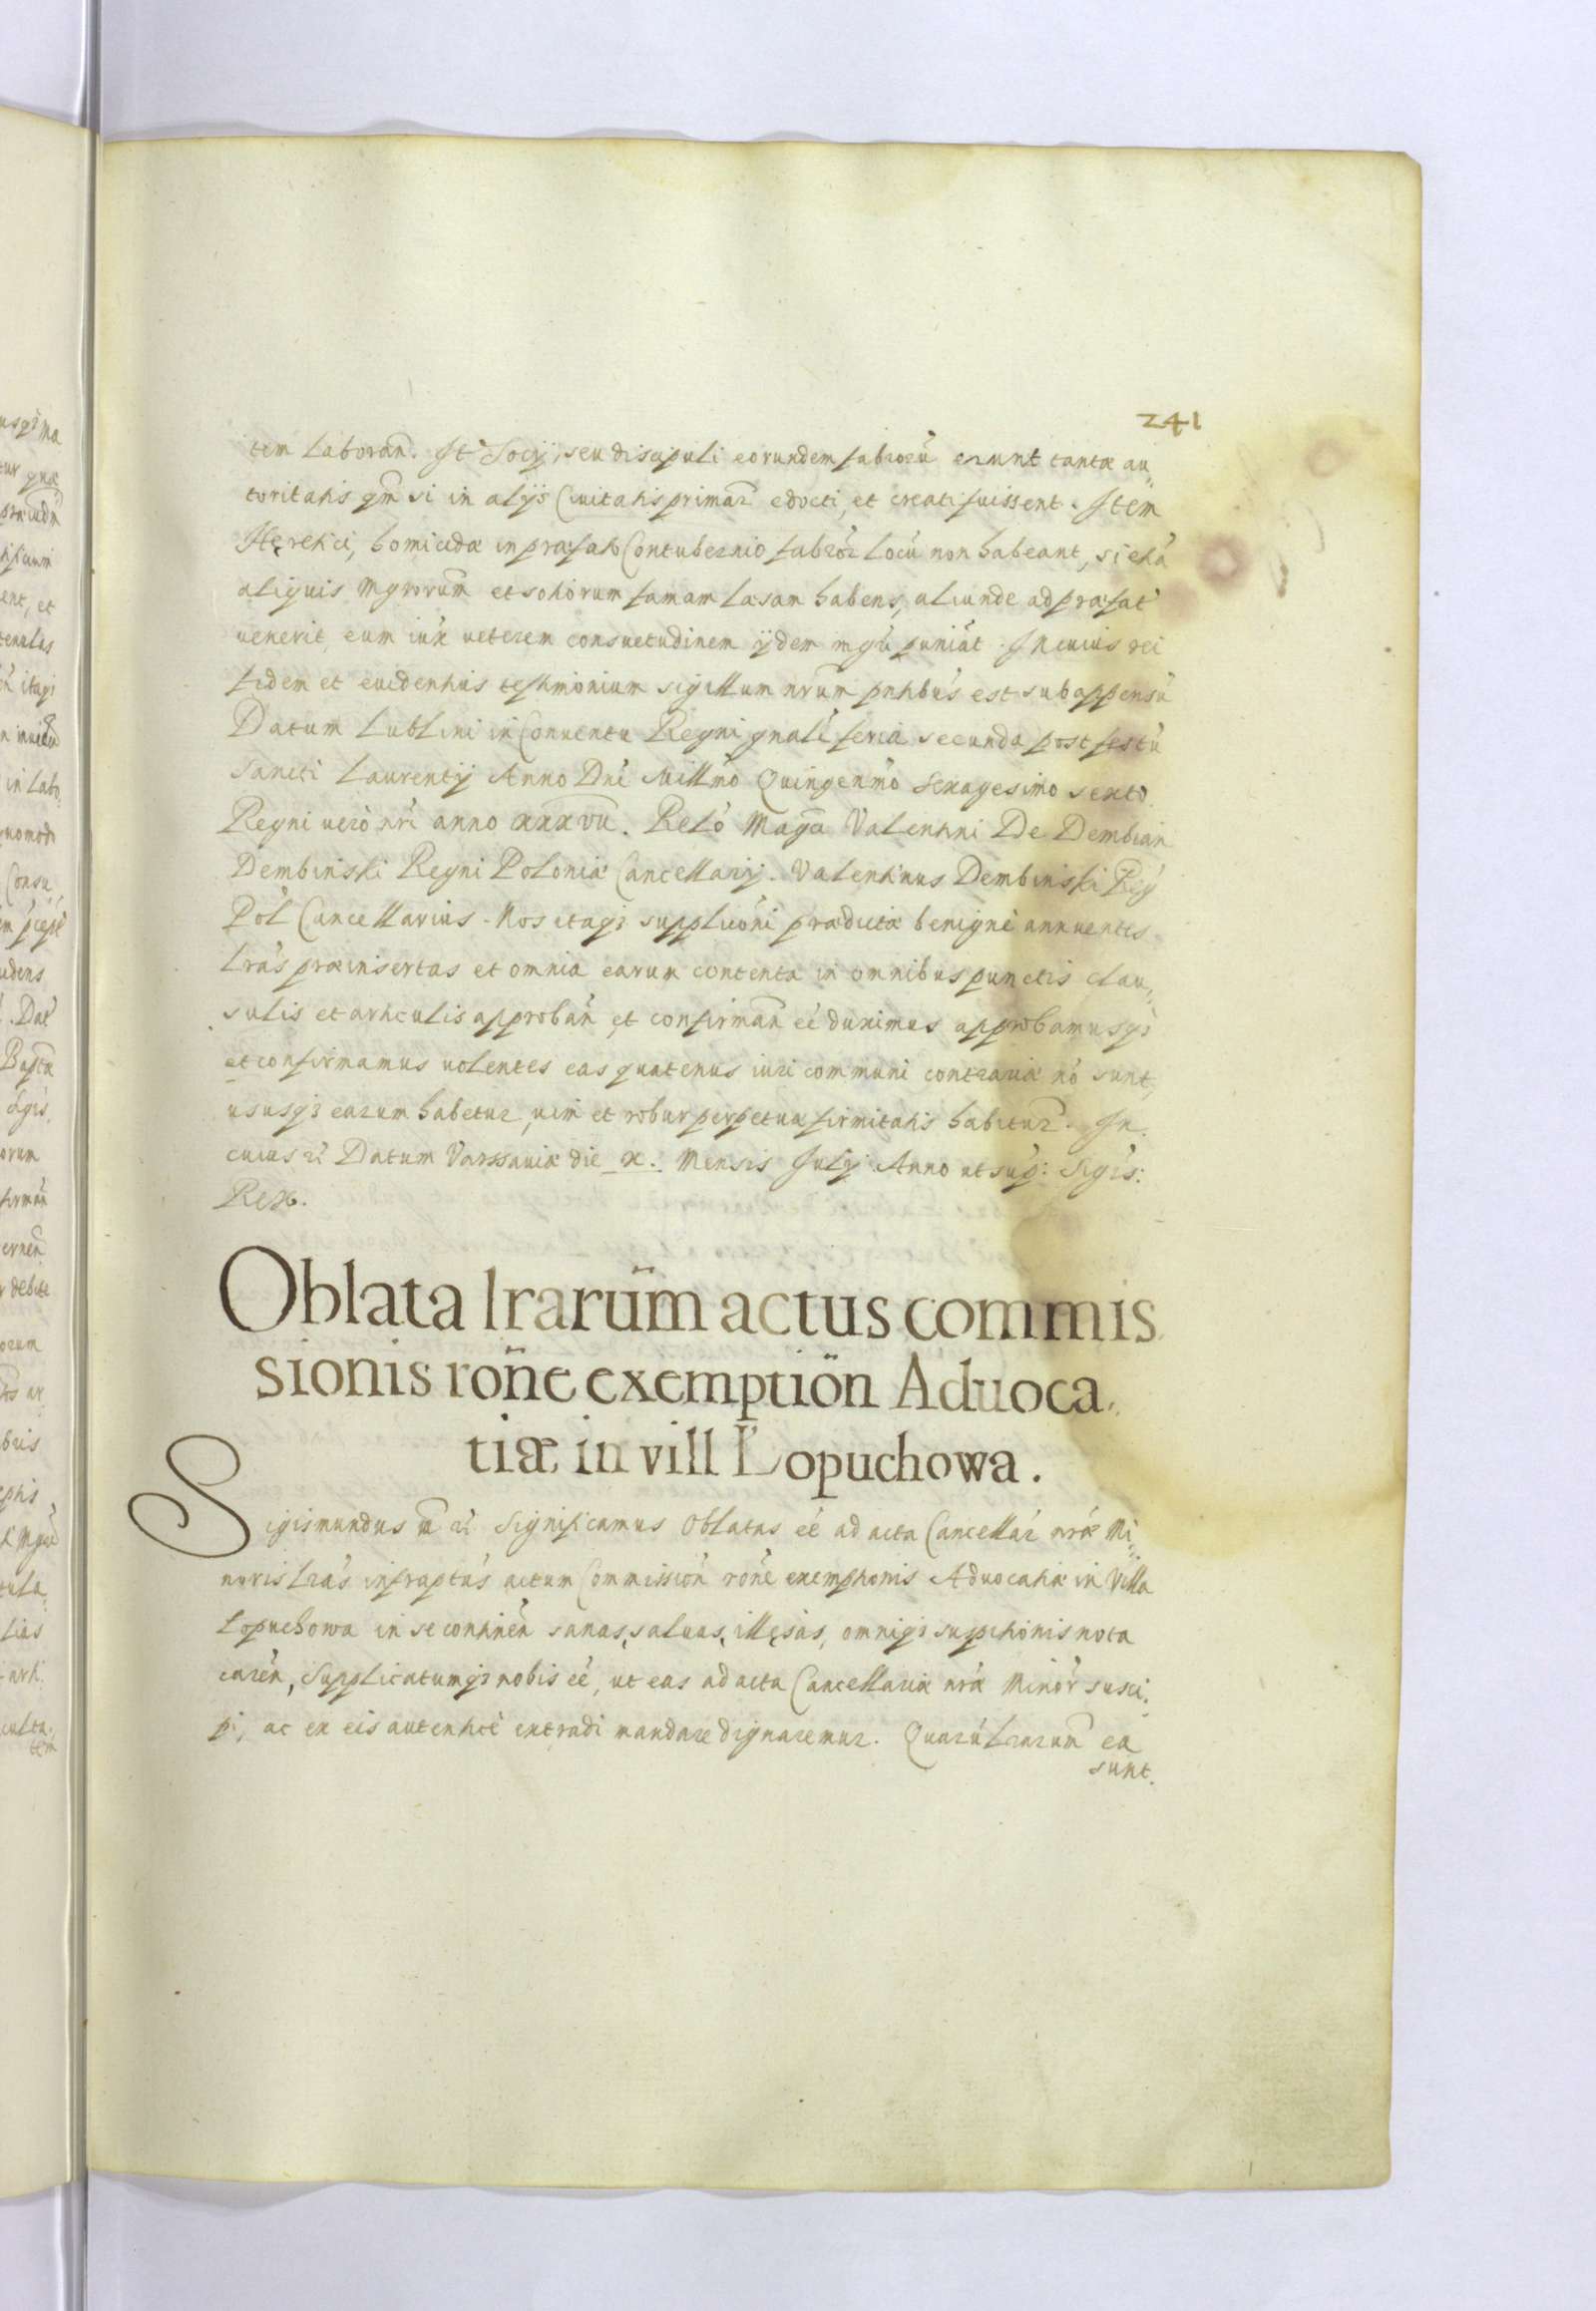 241
tem laborañ. It Socij, seu discipuli eorundem fabrorū erunt tantæ au„
toritatis qm̃ si in alijs Ciuitatis primar̃ edocti, et creati fuissent. Item
Hęretici, homicidæ in præfato Contubernio fabrōr locū non habeant, si etiā
aliquis Mgrorum̃ et sotiorum famam læsam habens, aliunde ad præfat̃
uenerit, eum iux ueterem consuetudinem ijdem mgr̃i puniāt. In cuius rei
fidem et euidentius testimonium sigillum nrum̃ pñtibus est subappensū
Datum Lublini in Conuentu Regni gñali feria secunda post festū
Sancti Laurentij Anno Dñi Millmo Quingenmo Sexagesimo sexto.
Regni uerò nr̃i anno xxxvii. Relō Magci Valentini De Dembian
Dembinski Regni Poloniæ Cancellarij. Valentinus Dembinski Reg̃
Pol Cancellarius. Nos itaqꝫ supplicōni prædictæ benignè annuentes
Lrãs præinsertas et omnia earum contenta in omnibus punctis clau„
sulis et articulis approbañ et confirmañ eē duximus approbamusqꝫ
et confirmamus uolentes eas quatenus iuri communi contrariæ nō sunt,
ususqꝫ earum habetur, uim et robur perpetuæ firmitatis habitur̃. In
cuius rei Datum Varssauiæ die x. Mensis Julij Anno ut sup: Sigis:
Rex.
Oblata lrarūm actus commis
sionis rōne exemptiön Aduoca„
tiæ in vill Łopuchowa.
Sigismundus III rc̃ Significamus Oblatas eē ad acta Cancellar̃ nræ Mi„
noris Lrãs infraptas actum Commissioñ rōne exemptionis Aduocatiæ in Villa
Lopuchowa in se contineñ sanas, saluas, illęsas, omniqꝫ suspitionis nota
careñ, Supplicatumqꝫ nobis eē, ut eas ad acta Cancellariæ nræ Minor̃ susci„
pi, ac ex eis autenticè extradi mandare dignaremur. Quarū Lrarum̃ ea
sunt.